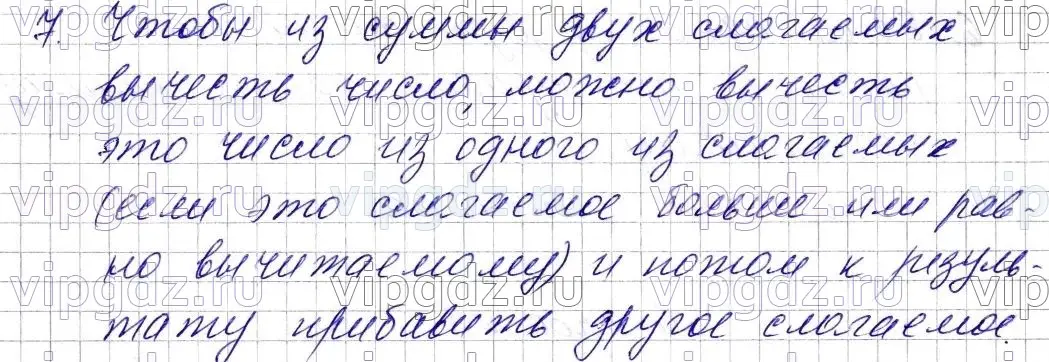 7. Чтобы из суммы двух слагаемых
вычесть число, можно вычесть
это число из одного из слагаемых
(если это слагаемое больше или рав-
но вычитаемому) и потом к резуль-
тату прибавить другое слагаемое.
vipgdz.ru vipgdz.ru vipgdz.ru vip
vipgdz.ru vipgdz.ru vipgdz.ru vip
vipgdz.ru vipgdz.ru vipgdz.ru vip
vipgdz.ru vipgdz.ru vipgdz.ru vip